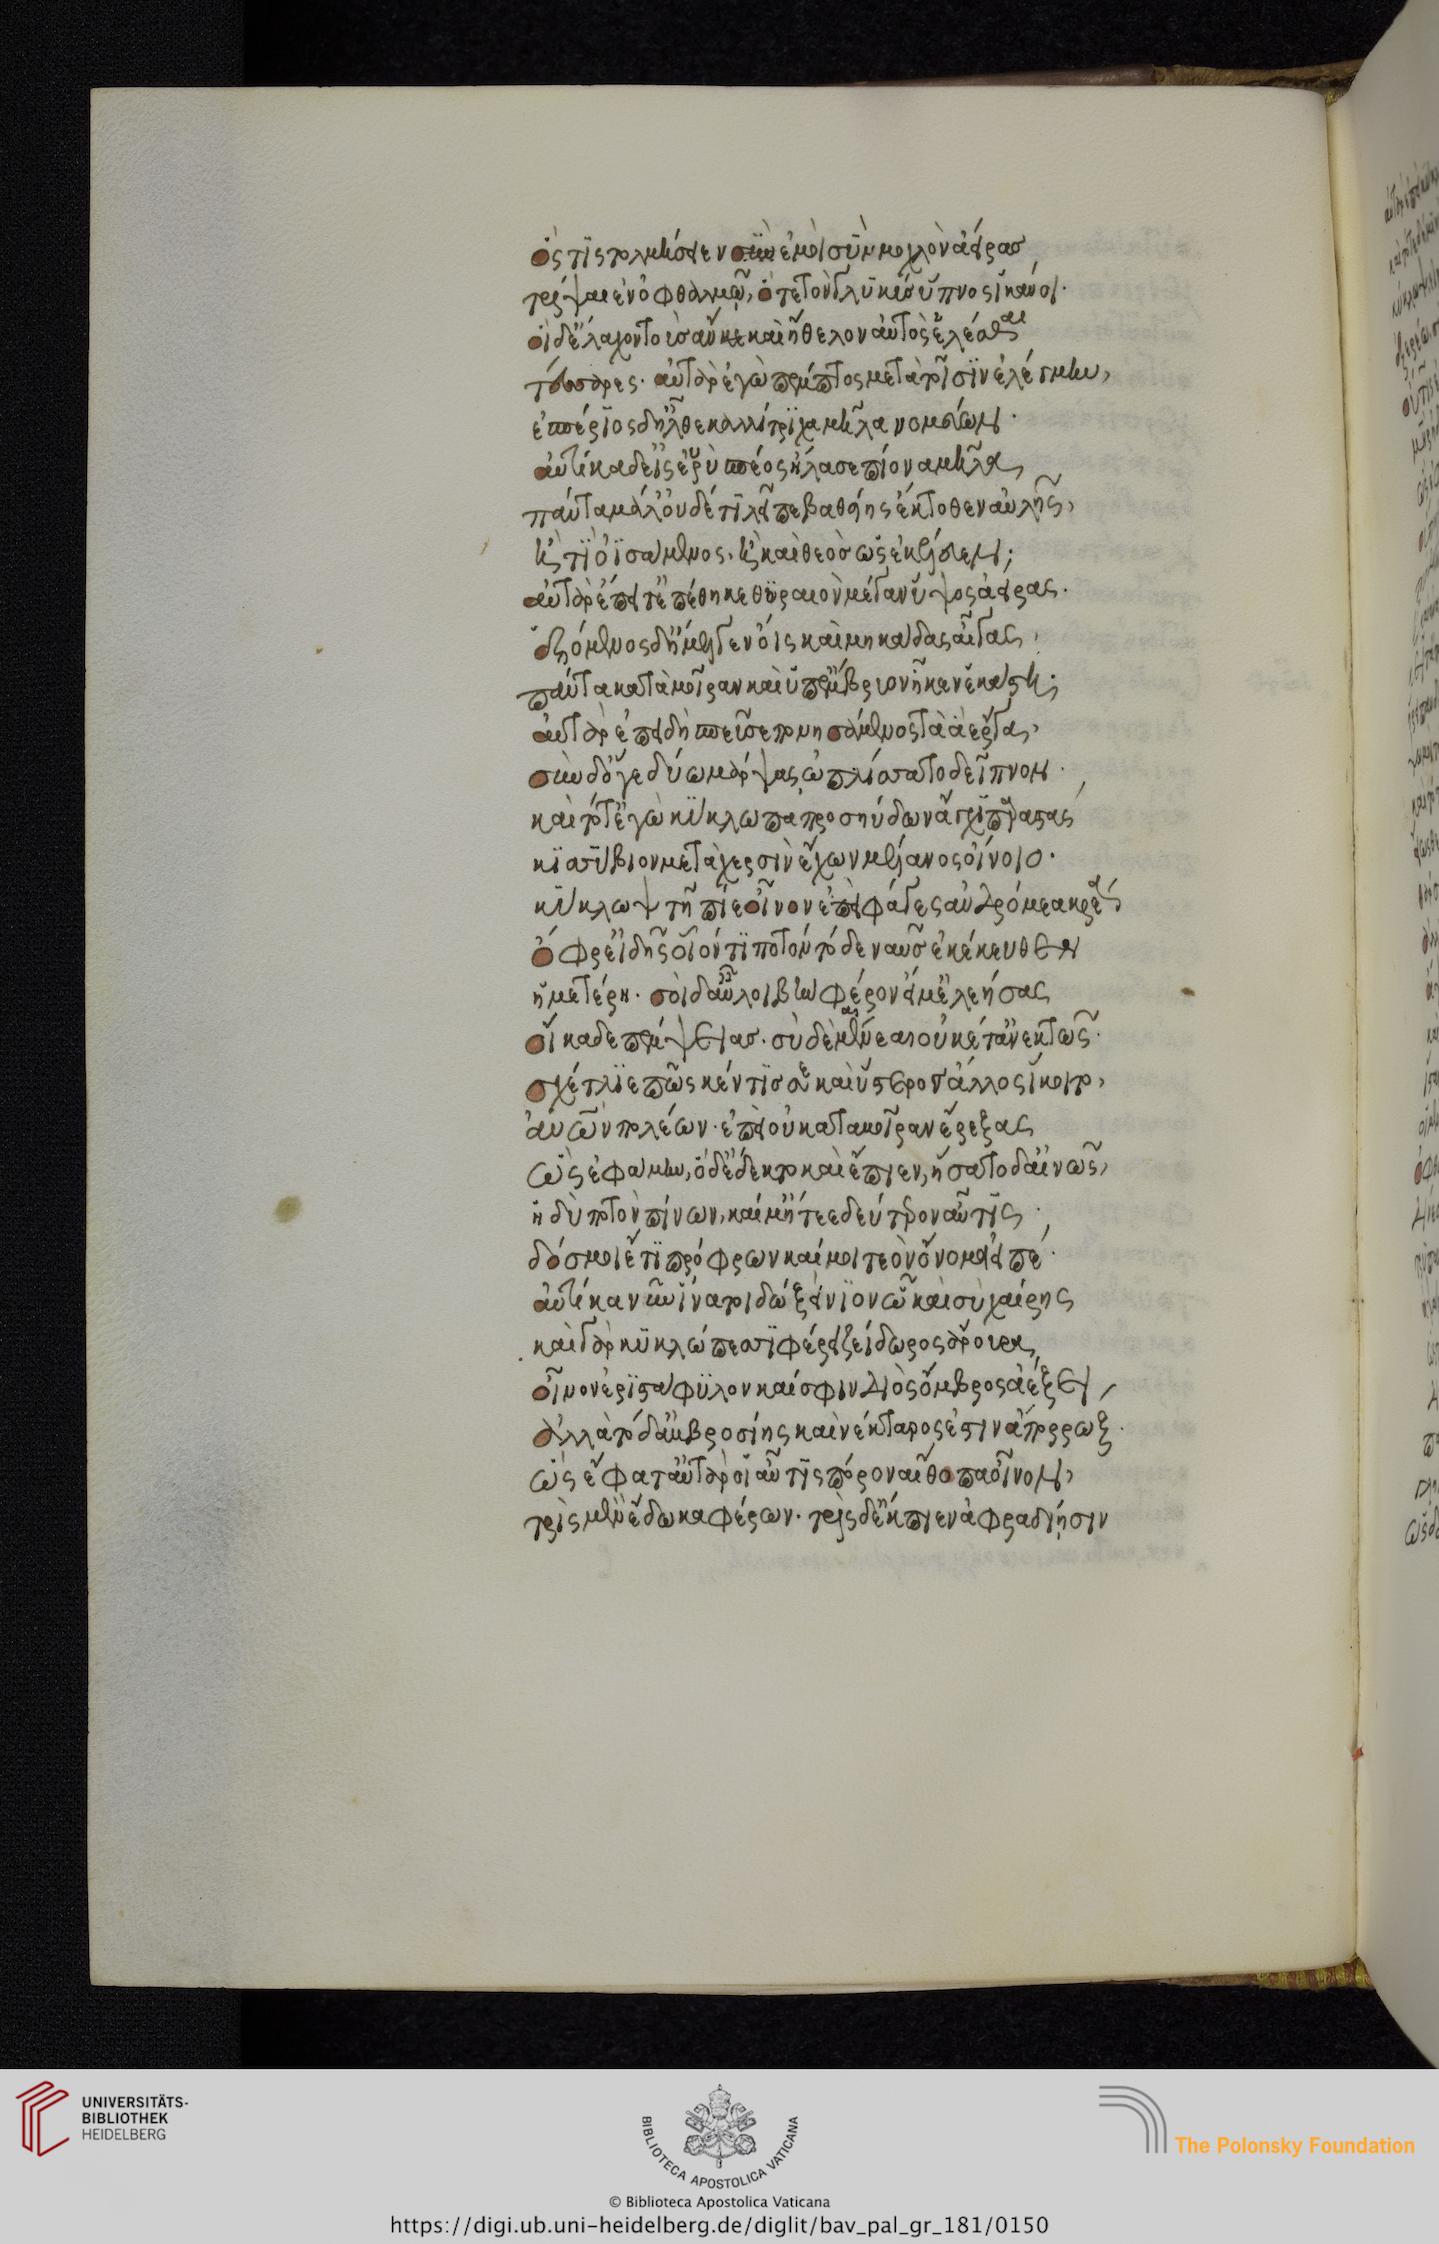 ὅς τις τολμήσειεν σὺν ἐμοὶ σὺν μοχλὸν ἀείρας
τρίψαι ἐν ὀφθαλμῶ, ὅτε τὸν γλυκὺς ὕπνος ἱκάνοι.
οἱ δ' ἔλαχον τοὺς ἄν κε καὶ ἤθελον αὐτὸς ἑλέσθαι
τέσσαρες. αὐτὰρ ἐγὼ πέμπτος μετὰ τοῖσιν ἐλέγμην,
ἑσπέριος δ' ἦλθε καλλίτριχα μῆλα νομεύων.
αὐτίκα δ' εἰς εὐρὺ σπέος ἤλασε πίονα μῆλα,
πάντα μάλ' οὐδέ τι λεῖπε βαθείης ἔκτοθεν αὐλῆς,
ἤ τι ὀϊσάμενος. ἢ καὶ θεὸς ὣς ἐκέλευεν;
αὐτὰρ ἔπειτ' ἐπέθηκε θυραιὸν μέγαν ὑψόσ' ἀείρας.
ἑζόμενος δ' ἤμελγεν ὄϊς καὶ μηκάδας αἶγας,
πάντα κατὰ μοῖραν καὶ ὑπ' ἔμβρυον ἧκεν ἑκάστη;
αὐτὰρ ἐπειδὴ σπεῦσε πονησάμενος τὰ ἃ ἔργα,
σὺν δ' ὅγε δύω μάρψας ὡπλίσσατο δεῖπνον.
καὶ τότ' ἐγὼ κύκλωπα προσηύδων ἄγχι παραστὰς
κισσύβιον μετὰ χερσὶν ἔχων μέλανος οἴνοιο.
κύκλωψ τῆ πίε οἶνον ἐπεὶ φάγες ἀνδρόμεα κρέα
ὄφρ' εἰδῆς οἷόν τι ποτὸν τόδε ναῦς ἐκέκευθεν
ἡμετέρη. σοὶ δ' αὖ λοιβὴν φέρον εἴ μ' ἐλεήσας
οἴκαδε πέμψειας. σὺ δὲ μαίνεαι οὐκέτ' ἀνεκτῶς.
σχέτλιε πῶς κέν τίς σε καὶ ὕστερον ἄλλος ἵκοιτο,
ἀνθρώπων πολέων. ἐπεὶ οὐ κατα μοῖραν ἔρεξας
ὣς ἐφάμην, ὁ δ' ἔδεκτο καὶ ἔπιεν, ἥσατο δ' αἰνῶς,
ἡδὺ ποτὸν πίνων, καί μ' ἤτεε δεύτερον αὖτις.
δός μοι ἔτι πρόφρων καί μοι τεὸν οὔνομα εἰπέ.
αὐτίκα νῦν ἵνα τοι δῶ ξείνιον ὧ κε σὺ χαίρης
καὶ γὰρ κυκλώπεσσι φέρει ζείδωρος ἄρουρα,
οἶνον ἐριστάφυλον καί σφιν Διὸς ὄμβρος ἀέξει,
ἀλλὰ τόδ' ἀμβροσίης καὶ νέκταρός ἐστιν ἀπορρώξ.
ὣς ἔφατ' αὐτὰρ οἱ αὖτις πόρον αἴθοπα οἶνον,
τρὶς μὲν ἔδωκα φέρων. τρὶς δ' ἔκπιεν ἀφραδίησιν
UNIVERSITÄTS-
BIBLIOTHEK
HEIDELBERG
BIBLIOTECA APOSTOLICA VATICANA
The Polonsky Foundation
© Biblioteca Apostolica Vaticana
https://digi.ub.uni-heidelberg.de/diglit/bav_pal_gr_181/0150